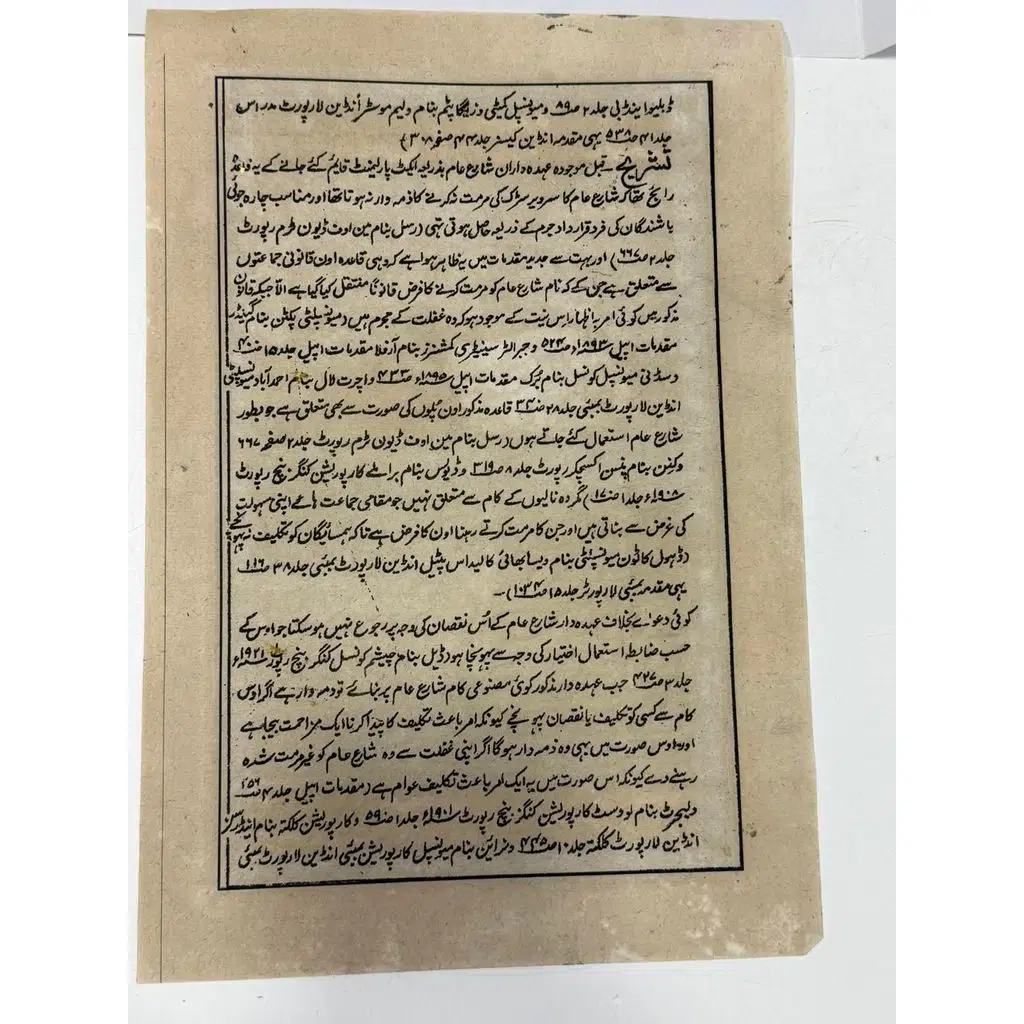 ڈبلیو اینڈ بی جلد ۲ صـ۸۹ و میونسپل کمیٹی وزیگاپٹم بنام ولیم موسٹر انڈین لارپورٹ مدراس
جلد ۴۱ صـ۵۳۸ یہی مقدمہ انڈین کیسز جلد ۴۴ صفحہ ۳۰۸)
تشریح ـ قبل موجودہ عہدہ داران شارع عام بذریعہ ایکٹ پارلیمنٹ قایم کئے جانے کے یہ قاعدہ
رائج تھا کہ شارع عام کا سرویر سڑک کی مرمت نہ کرنے کا ذمہ وار نہ ہوتا تھا اور مناسب چارہ جوئی
باشندگان کی فرد قرارداد جرم کے ذریعہ حاصل ہوتی تہی (رسل بنام مین اوف ڈیون ٹرم رپورٹ
جلد ۲ صـ۶۶۷) اور بہت سے جدید مقدمات میں یہ ظاہر ہوا ہے کہ وہی قاعدہ اون قانونی جماعتوں
سے متعلق ہے جن کے کہ نام شارع عام کو مرمت کرنے کا فرض قانوناً منتقل کیا گیا ہے الّا جبکہ قانون
مذکور میں کوئی امر باظہار اس نیت کے موجود ہو کہ وہ غفلت کے مجرم ہیں (میونسپلٹی پکٹن بنام گیلڈرٹ
مقدمات اپیل ۱۸۹۳ء صـ۵۲۴ و جبرالٹر سینیٹری کمشنرز بنام آرفلا مقدمات اپیل جلد ۱۵ صـ۴۰۰
و سڈنی میونسپل کونسل بنام بُرک مقدمات اپیل ۱۸۹۵ء صـ۴۳۳ و اچرت لال بنام احمدآباد میونسپلٹی
انڈین لارپورٹ بمبئی جلد ۲۸ صـ۳۴۰ قاعدہ مذکور اون پُلوں کی صورت سے بھی متعلق ہے جو بطور
شارع عام استعمال کئے جاتے ہوں (رسل بنام مین اوف ڈیون ٹرم رپورٹ جلد ۲ صفحہ ۶۶۷
وکفن بنام پنسن اکسچکر رپورٹ جلد ۸ صـ۳۱۹ و ڈیوس بنام براملے کارپوریشن کنگز بنچ رپورٹ
۱۹۰۸ء جلد ۱ صـ۱۷۰) مگر وہ نالیوں کے کام سے متعلق نہیں جو مقامی جماعت ہائے اپنی سہولیت
کی غرض سے بناتی ہیں اور جن کا مرمت کرتے رہنا اون کا فرض ہے تاکہ ہمسائیگان کو تکلیف نہ پہونچے
(ڈہول کا ٹون میونسپلٹی بنام ویسا بھائی کالیداس پٹیل انڈین لارپورٹ بمبئی جلد ۳۸ صـ۱۱۶
یہی مقدمہ بمبئی لارپورٹر جلد ۱۵ صـ۱۰۳۴) ـ
کوئی دعوےٰ بخلاف عہدہ دار شارع عام کے اُس نقصان کی وجہ پر رجوع نہیں ہوسکتا جو اوس کے
حسب ضابطہ استعمال اختیار کی وجہ سے پہونچا ہو (ڈیل بنام چیشم کونسل کنگز بنچ رپورٹ ۱۹۲۱ء
جلد ۳ صـ۴۲۷ جب عہدہ دار مذکور کوئی مصنوعی کام شارع عام پر بنائے تو ذمہ وار ہے اگر اوس
کام سے کسی کو تکلیف یا نقصان پہونچے کیونکہ امر باعث تکلیف کا پیدا کرنا ایک مزاحمت بیجا ہے
اور اوس صورت میں بھی وہ ذمہ دار ہوگا اگر اپنی غفلت سے وہ شارع عام کو غیر مرمت شدہ
رہنے دے کیونکہ اس صورت میں یہ ایک امر باعث تکلیف عوام ہے (مقدمات اپیل جلد ۴ صـ۲۵۶
وایحرٹ بنام لووسٹ کارپوریشن کنگز بنچ رپورٹ ۱۹۰۱ء جلد ۱ صـ۵۹۰ و کارپوریشن کلکتہ بنام اینڈرسن
انڈین لارپورٹ کلکتہ جلد ۱۰ صـ۴۴۵ و نرائن بنام میونسپل کارپوریشن بمبئی انڈین لارپورٹ بمبئی